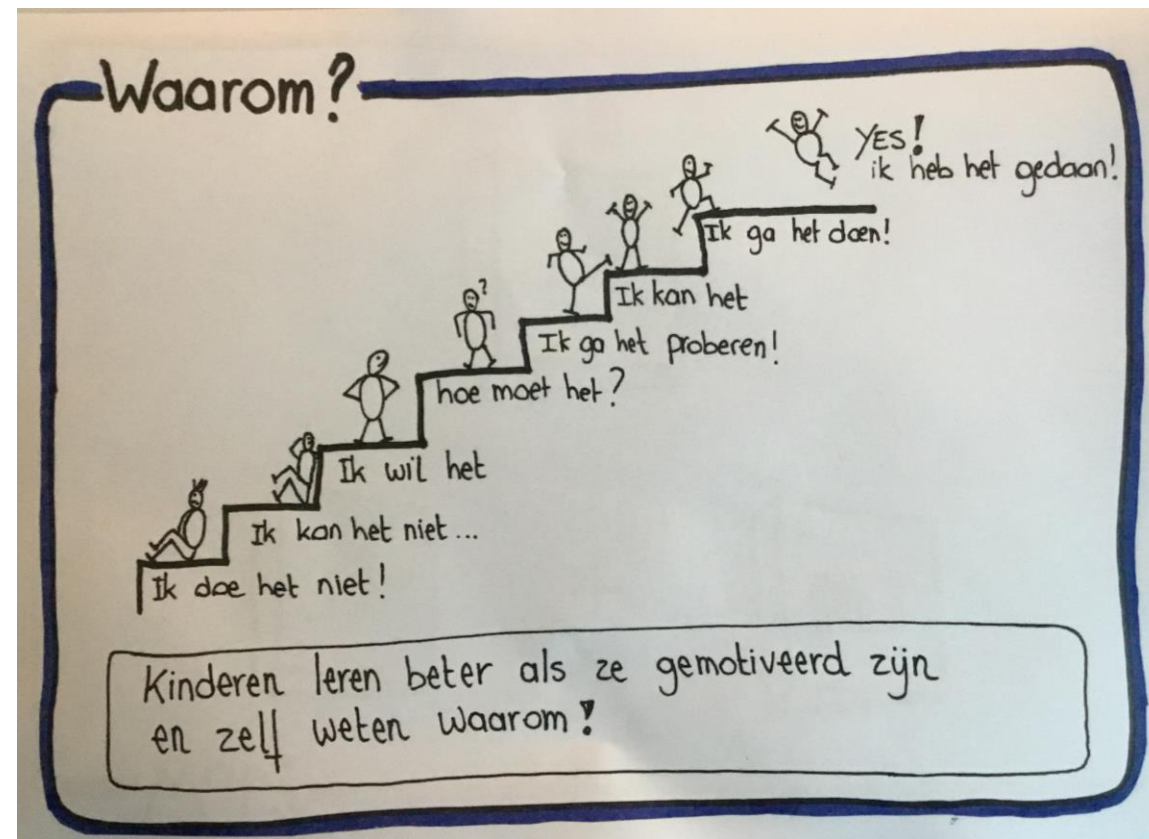 Waarom?
YES!
ik heb het gedaan!
Ik ga het doen!
Ik kan het
Ik ga het proberen!
hoe moet het?
Ik wil het
Ik kan het niet...
Ik doe het niet!
?
Kinderen leren beter als ze gemotiveerd zijn
en zelf weten waarom!